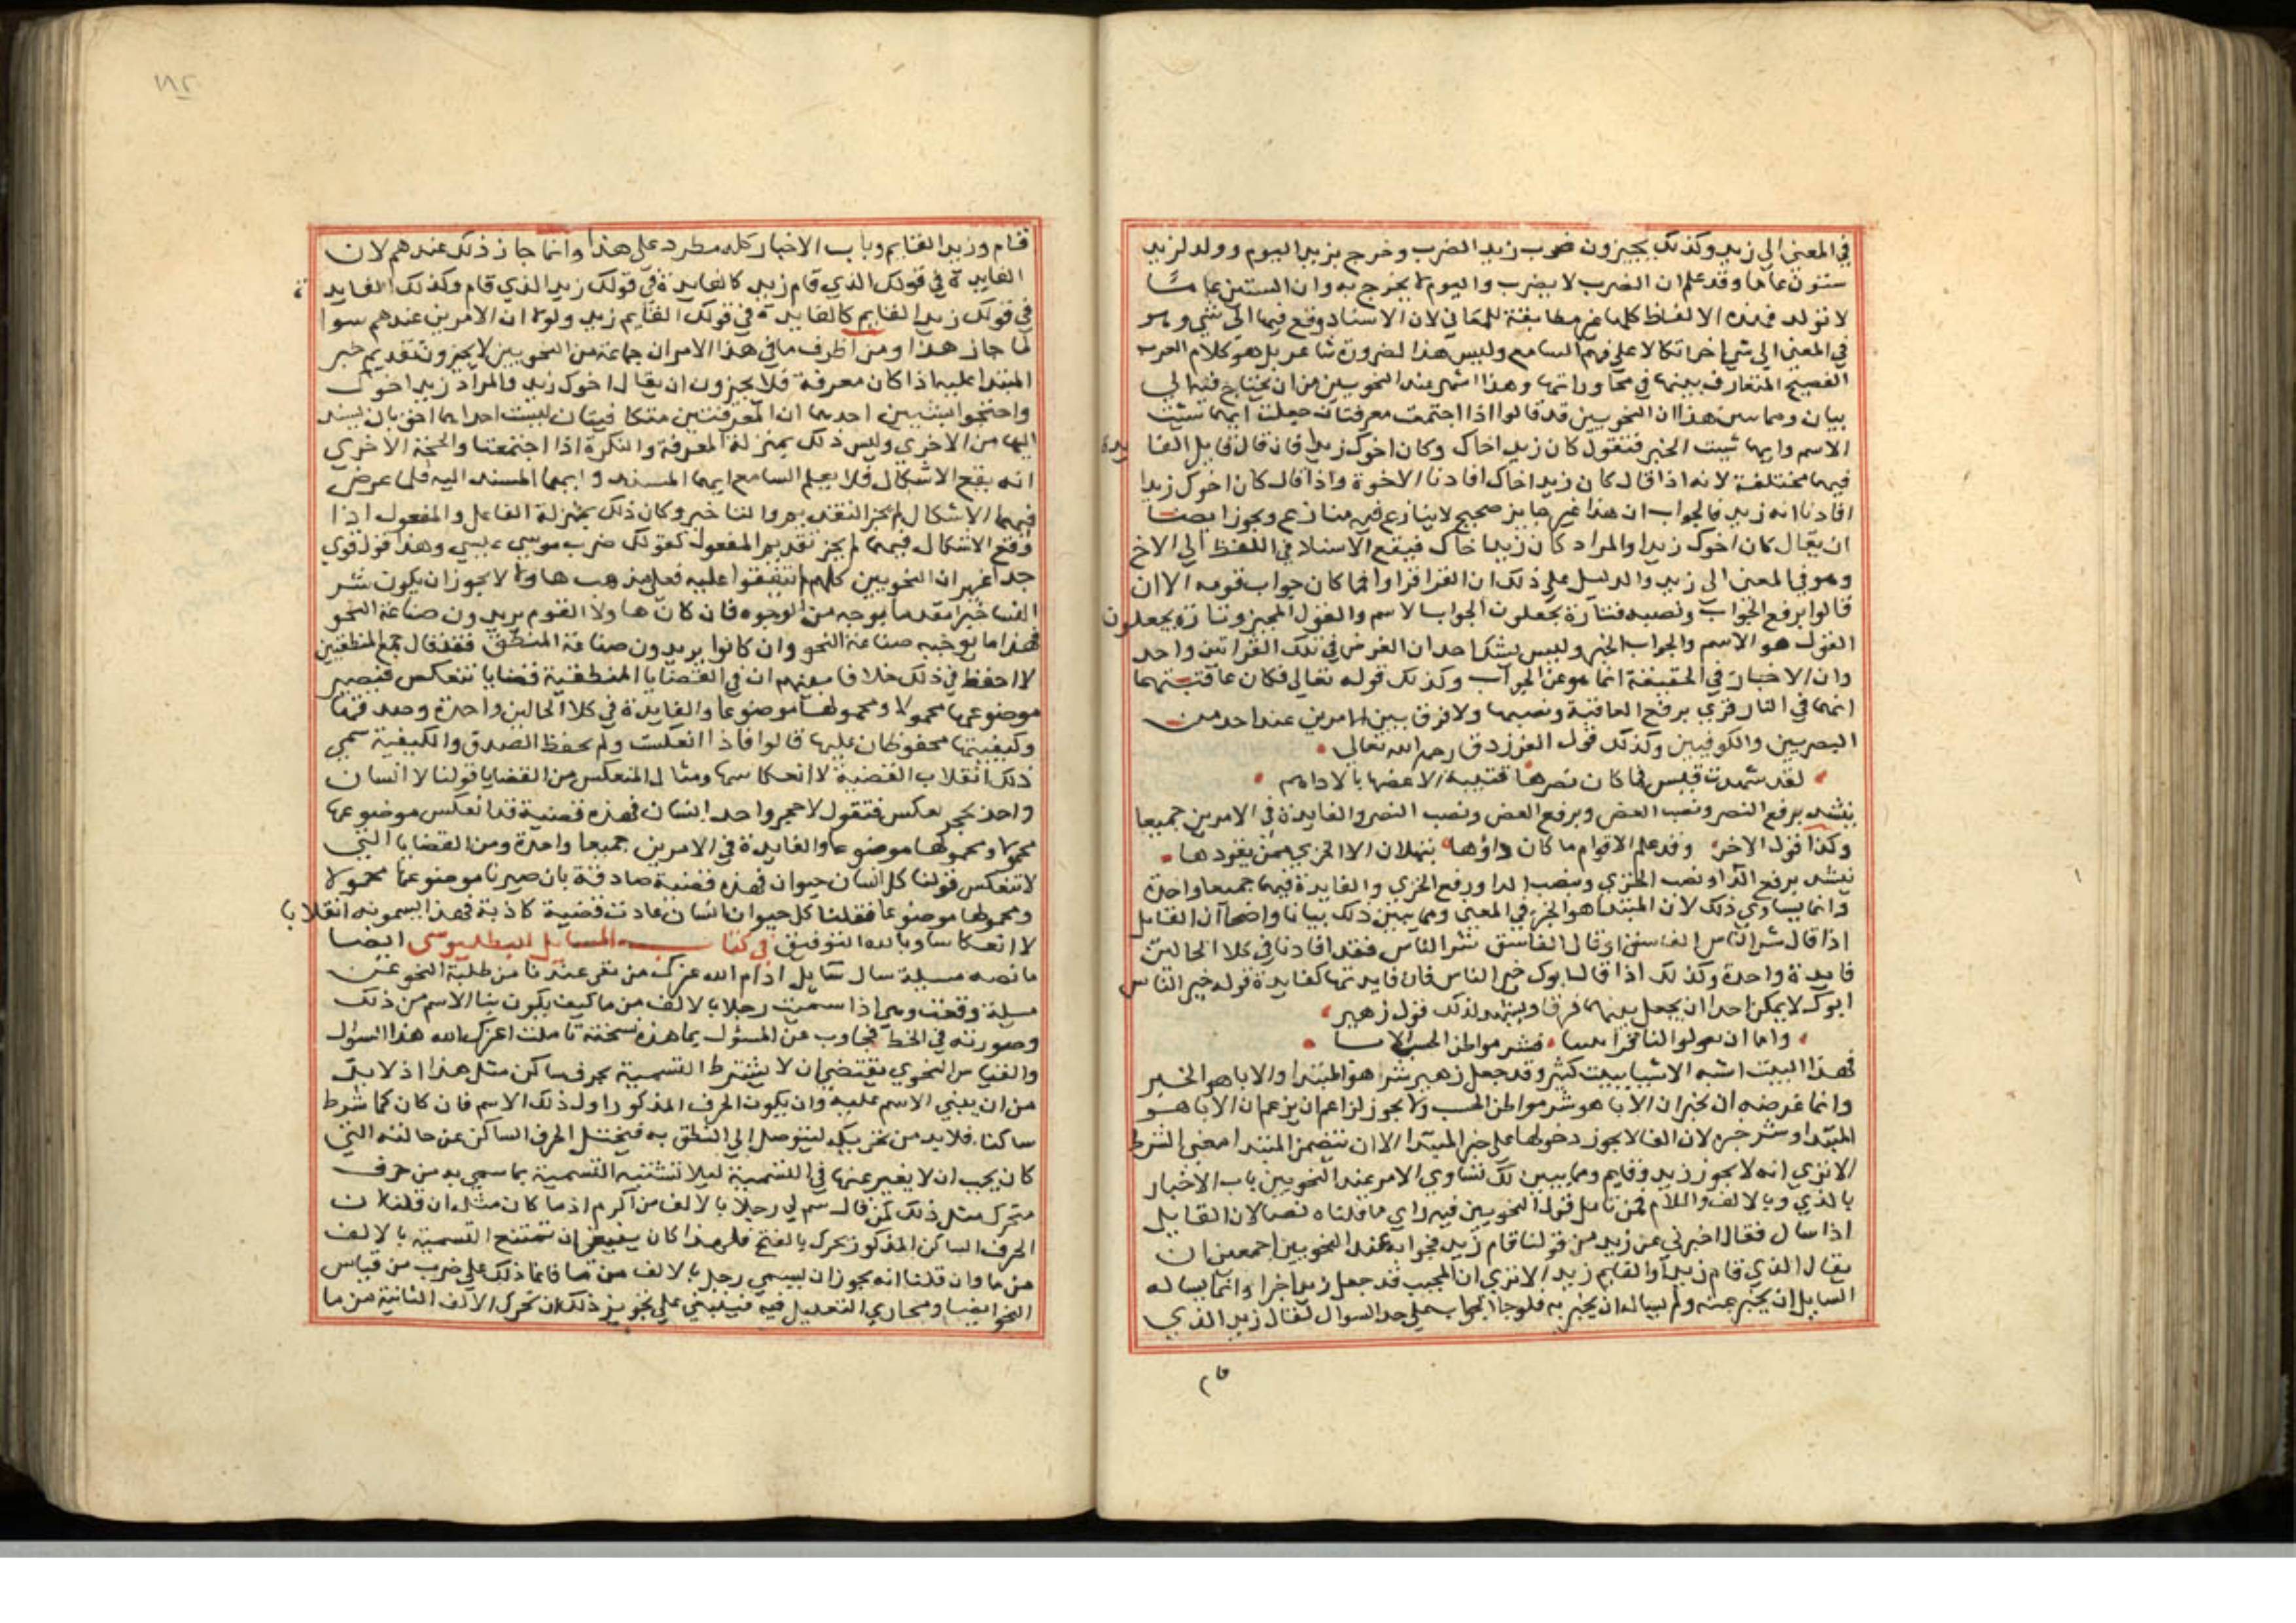 في المعني الي زيد وكذلك يجيزون ضرب زيد الضرب وخرج بزيد اليوم وولد لزيد
ستون عاما وقد علم ان الضرب لا يضرب واليوم لا يخرج به وان الستين عاما
لا تولد فهذه الالفاظ كلها غير مطابقة للمعاني لان الاسناد وقع فيها الي شي وهو
في المعني الي شي اخر اتكالا علي فهم السامع وليس هذا لضرورة شاعر بل هو كلام العرب
الفصيح المتعارف بينها في محاوراتها وهذا اشهر عند النحويين من ان يحتاج فيه الي
بيان ومما يبين هذا ان النحويين قد قالوا اذا اجتمعت معرفتان جعلت ايهما شئت
الاسم وايهما شئت الخبر فتقول كان زيد اخاك وكان اخوك زيدا فان قال قايل الفا يدة
فيهما مختلفة لانه اذا قال كان زيد اخاك افادنا الاخوة واذا قال كان اخوك زيدا
افادنا انه زيد فالجواب ان هذا غير جايز صحيح لا ينازع فيه منازع ويجوز ايضا
ان يقال كان اخوك زيدا والمراد كان زيد اخاك فيقع الاسناد في اللفظ الي الاخ
وهو في المعني الي زيد والدليل علي ذلك ان القرا قراوا فما كان جواب قومه الا ان
قالوا برفع الجواب ونصبه فتارة يجعلون الجواب الاسم والقول الخبر وتارة يجعلون
القول هو الاسم والجواب الخبر وليس يشك احد ان الغرض في تلك القراتين واحد
وان الاخبار في الحقيقة انما هو عن الجواب وكذلك قوله تعالي فكان عاقبتهما
انهما في النار قري برفع العاقبة ونصبها ولا فرق بين الامرين عند احد من
البصريين والكوفيين وكذلك قول الفرزدق رحمه الله تعالي
لقد شهدت قيس فما كان نصرها قتيبة الا عضها بالاداهم
ينشد برفع النصر ونصب العض وبرفع العض ونصب النصر والفايدة في الامرين جميعا
وكذا قول الاخر وقد علم الاقوام ما كان داؤها بثهلان الا الخزي ممن يقودها
ينشد برفع الدا ونصب الخزي ونصب الدا ورفع الخزي والفايدة فيهما جميعا واحدة
وانما يساوي ذلك لان المبتدا هو الخبر في المعني ومما يبين ذلك بيانا واضحا ان القايل
اذا قال شر الناس الفاسق او قال الفاسق شر الناس فقد افادنا في كلا الحالين
فايدة واحدة وكذلك اذا قال ابوك خير الناس فان فايدتها كفايدة قوله خير الناس
ابوك لا يمكن احدا ان يجعل بينهما فرقا ويشهد لذلك قول زهير
واما ان يقولوا فشر مواطن الحسب الابا
فهذا البيت اشبه الاشيا ببيت كثير وقد جعل زهير شرا هو المبتدا والابا هو الخبر
وانما غرضه ان يخبر ان الابا هو شر مواطن الحسب ولا يجوز لزاعم ان يزعم ان الابا هو
المبتدا وشر خبره لان الفا لا يجوز دخولها علي خبر المبتدا الا ان يتضمن المبتدا معني الشرط
الا تري انه لا يجوز زيد فقايم ومما يبين لك تساوي الامر عند النحويين باب الاخبار
بالذي وبالالف واللام فمن تامل قول النحويين فيه راي ما قلناه نصا لان القايل
اذا سال فقال اخبرني عن زيد من قولنا قام زيد فجوابه عند النحويين اجمعين ان
يقال الذي قام زيد او القايم زيد الا تري ان المجيب قد جعل زيدا خبرا وانما يساله
السايل ان يخبر عنه ولم يساله ان يخبر به فلو جا الجواب علي حد السوال لقال زيد الذي
قام
١٨٢
قام وزيد القايم وباب الاخبار كله مطرد علي هذا وانما جاز ذلك عندهم لان
الفايدة في قولك الذي قام زيد كالفايدة في قولك زيد الذي قام وكذلك الفايد ة
في قولك زيد القايم كالفايدة في قولك القايم زيد ولولا ان الامرين عندهم سوا
لما جاز هذا ومن اظرف ما في هذا الامر ان جماعة من النحويين لا يجيزون تقديم خبر
المبتدا عليه اذا كان معرفة فلا يجيزون ان يقال اخوك زيد والمراد زيد اخوك
واحتجوا بشيين احدهما ان المعرفتين متكافيتان ليست احداهما احق بان يسند
اليها من الاخري وليس ذلك بمنزلة المعرفة والنكرة اذا اجتمعتا والحجة الاخري
انه يقع الاشكال فلا يعلم السامع ايهما المسند وايهما المسند اليه فلما عرض
فيهما الاشكال لم يجز التقديم والتاخير وكان ذلك بمنزلة الفاعل والمفعول اذا
وقع الاشكال فيهما لم يجز تقديم المفعول كقولك ضرب موسي عيسي وهذا قول قوي
جدا غير ان النحويين كلهم لم يتفقوا عليه فعلي مذهب هاولا لا يجوز ان يكون شر
النسا خبرا مقدما بوجه من الوجوه فان كان هاولا القوم يريدون صناعة النحو
فهذا ما يوجبه صناعة النحو وان كانوا يريدون صناعة المنطق فقد قال جميع المنطقيين
لا احفظ في ذلك خلافا بينهم ان في القضايا المنطقية قضايا تنعكس فيصير
موضوعها محمولا ومحمولها موضوعا والفايدة في كلا الحالين واحدة وصدقها
وكيفيتها محفوظان عليها قالوا فاذا انعكست ولم يحفظ الصدق والكيفية سمي
ذلك انقلاب القضية لا انعكاسها ومثال المنعكس من القضايا قولنا لا انسان
واحد بحجر بعكس فتقول لا حجر واحد انسان فهذه قضية قد انعكس موضوعها
محمولا ومحمولها موضوعا والفايدة في الامرين جميعا واحدة ومن القضايا التي
لا تنعكس قولنا كل انسان حيوان فهذه قضية صادقة بان صيرنا موضوعها محمولا
ومحمولها موضوعا فقلنا كل حيوان انسان عادت قضية كاذبة فهذا يسمونه انقلابا
لا انعكاسا وبالله التوفيق في كتاب المسايل البطليوسي ايضا
ما نصه مسيلة سال سايل ادام الله عزك من عندنا من طلبة النحو عن
مسيلة وقعت وهي اذا سميت رجلا بالالف من ما كيف يكون بنا الاسم من ذلك
وصورته في الخط فجاوب عن المسئول بما هذه نسخته تاملت اعزك الله هذا السؤال
والقياس النحوي يقتضي ان لا يشترط التسمية بحرف ساكن مثل هذا اذ لا بد
من ان يبني الاسم عليه وان يكون الحرف المذكور اول ذلك الاسم فان كان كما شرط
ساكنا فلا بد من تحريكه ليتوصل الي النطق به فيختل الحرف الساكن عن حالته التي
كان يجب ان لا يغير عنها في التسمية ليلا تشتبه التسمية بما سمي به من حرف
متحرك مثل ذلك كمن قال سم لي رجلا بالالف من اكرم اذ ما كان مثله ان قلنا ان
الحرف الساكن المذكور يحرك بالفتح فلهذا كان ينبغي ان تمتنع التسمية بالالف
من ما وان قلنا انه يجوز ان يسمي رجل بالالف من ما فانما ذلك علي ضرب من قياس
النحو ايضا ومجاري التعليل فيه فينبغي علي تجويز ذلك ان تحرك الالف الثانية من ما